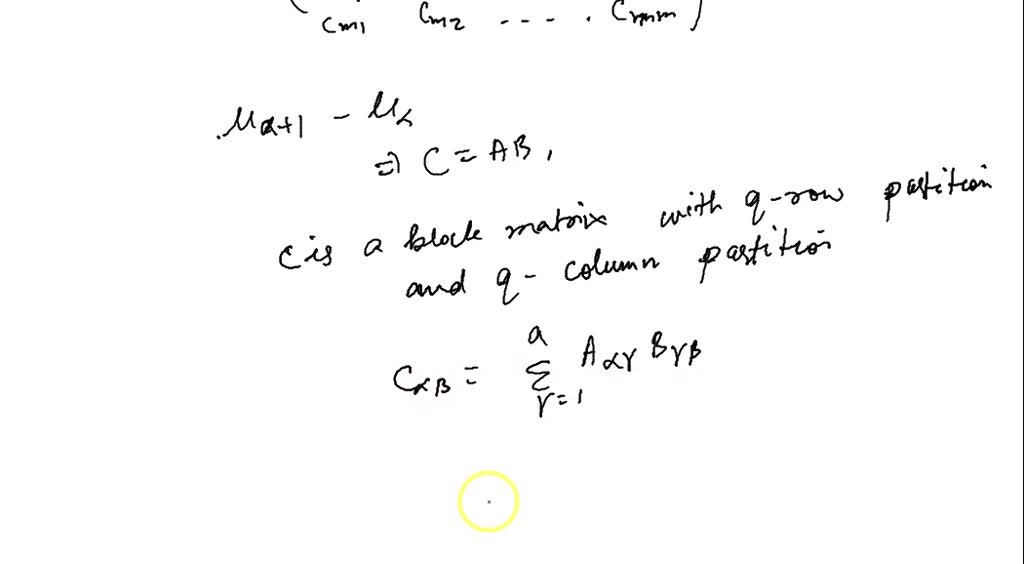 Cm1 Cm2 ---- . Cmm )
. μα+1 - μα
⇒ C = AB,
C is a block matrix with q-row partition
and q- column partition
Cαβ = a Σ γ=1 Aαγ Bγβ